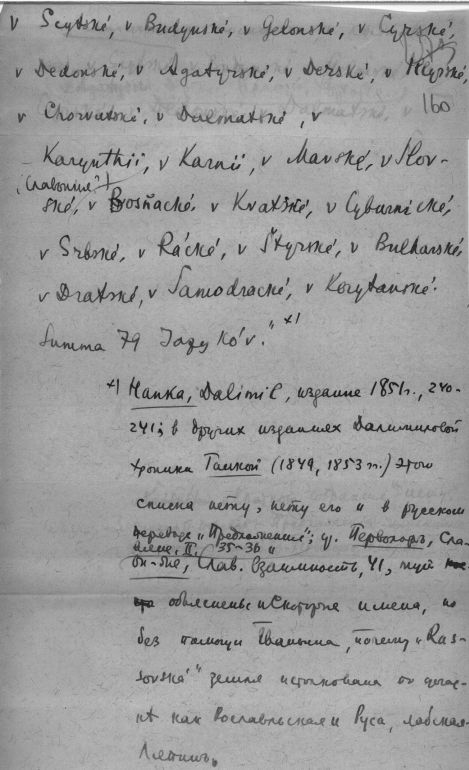 v Scytské, v Budynské, v Gelonské, v Cyrské,
v Dedonské, v Agatyrské, v Derské, v Alypské,
160
v Chorvatské, v Dalmatské, v
Karynthii, v Karnii, v Manské, v Slov-
(Slavonii?)
ské, v Bosňacké, v Kvatské, v Cyburnické,
v Srbské, v Rácké, v Štyrské, v Bulharské,
v Dratské, v Samodracké, v Korytanské.
Summa 79 Jazykóv." x)
x) Hanka, Dalimil, издание 1851г., 240-
241; в других изданиях Далимиловой
хроники Ганкой (1849, 1853 гг.) этого
списка нету, нету его и в русском
переводе „Предположения"; ср. Первольф, Сла-
вяне, II, 35-36 и
Он-же, Слав. Взаимность, 41,
объясненье некоторые имена, но
без помощи почему „Rus-
sovské" земля истолкована он
как Рославльская и Руса, лабская